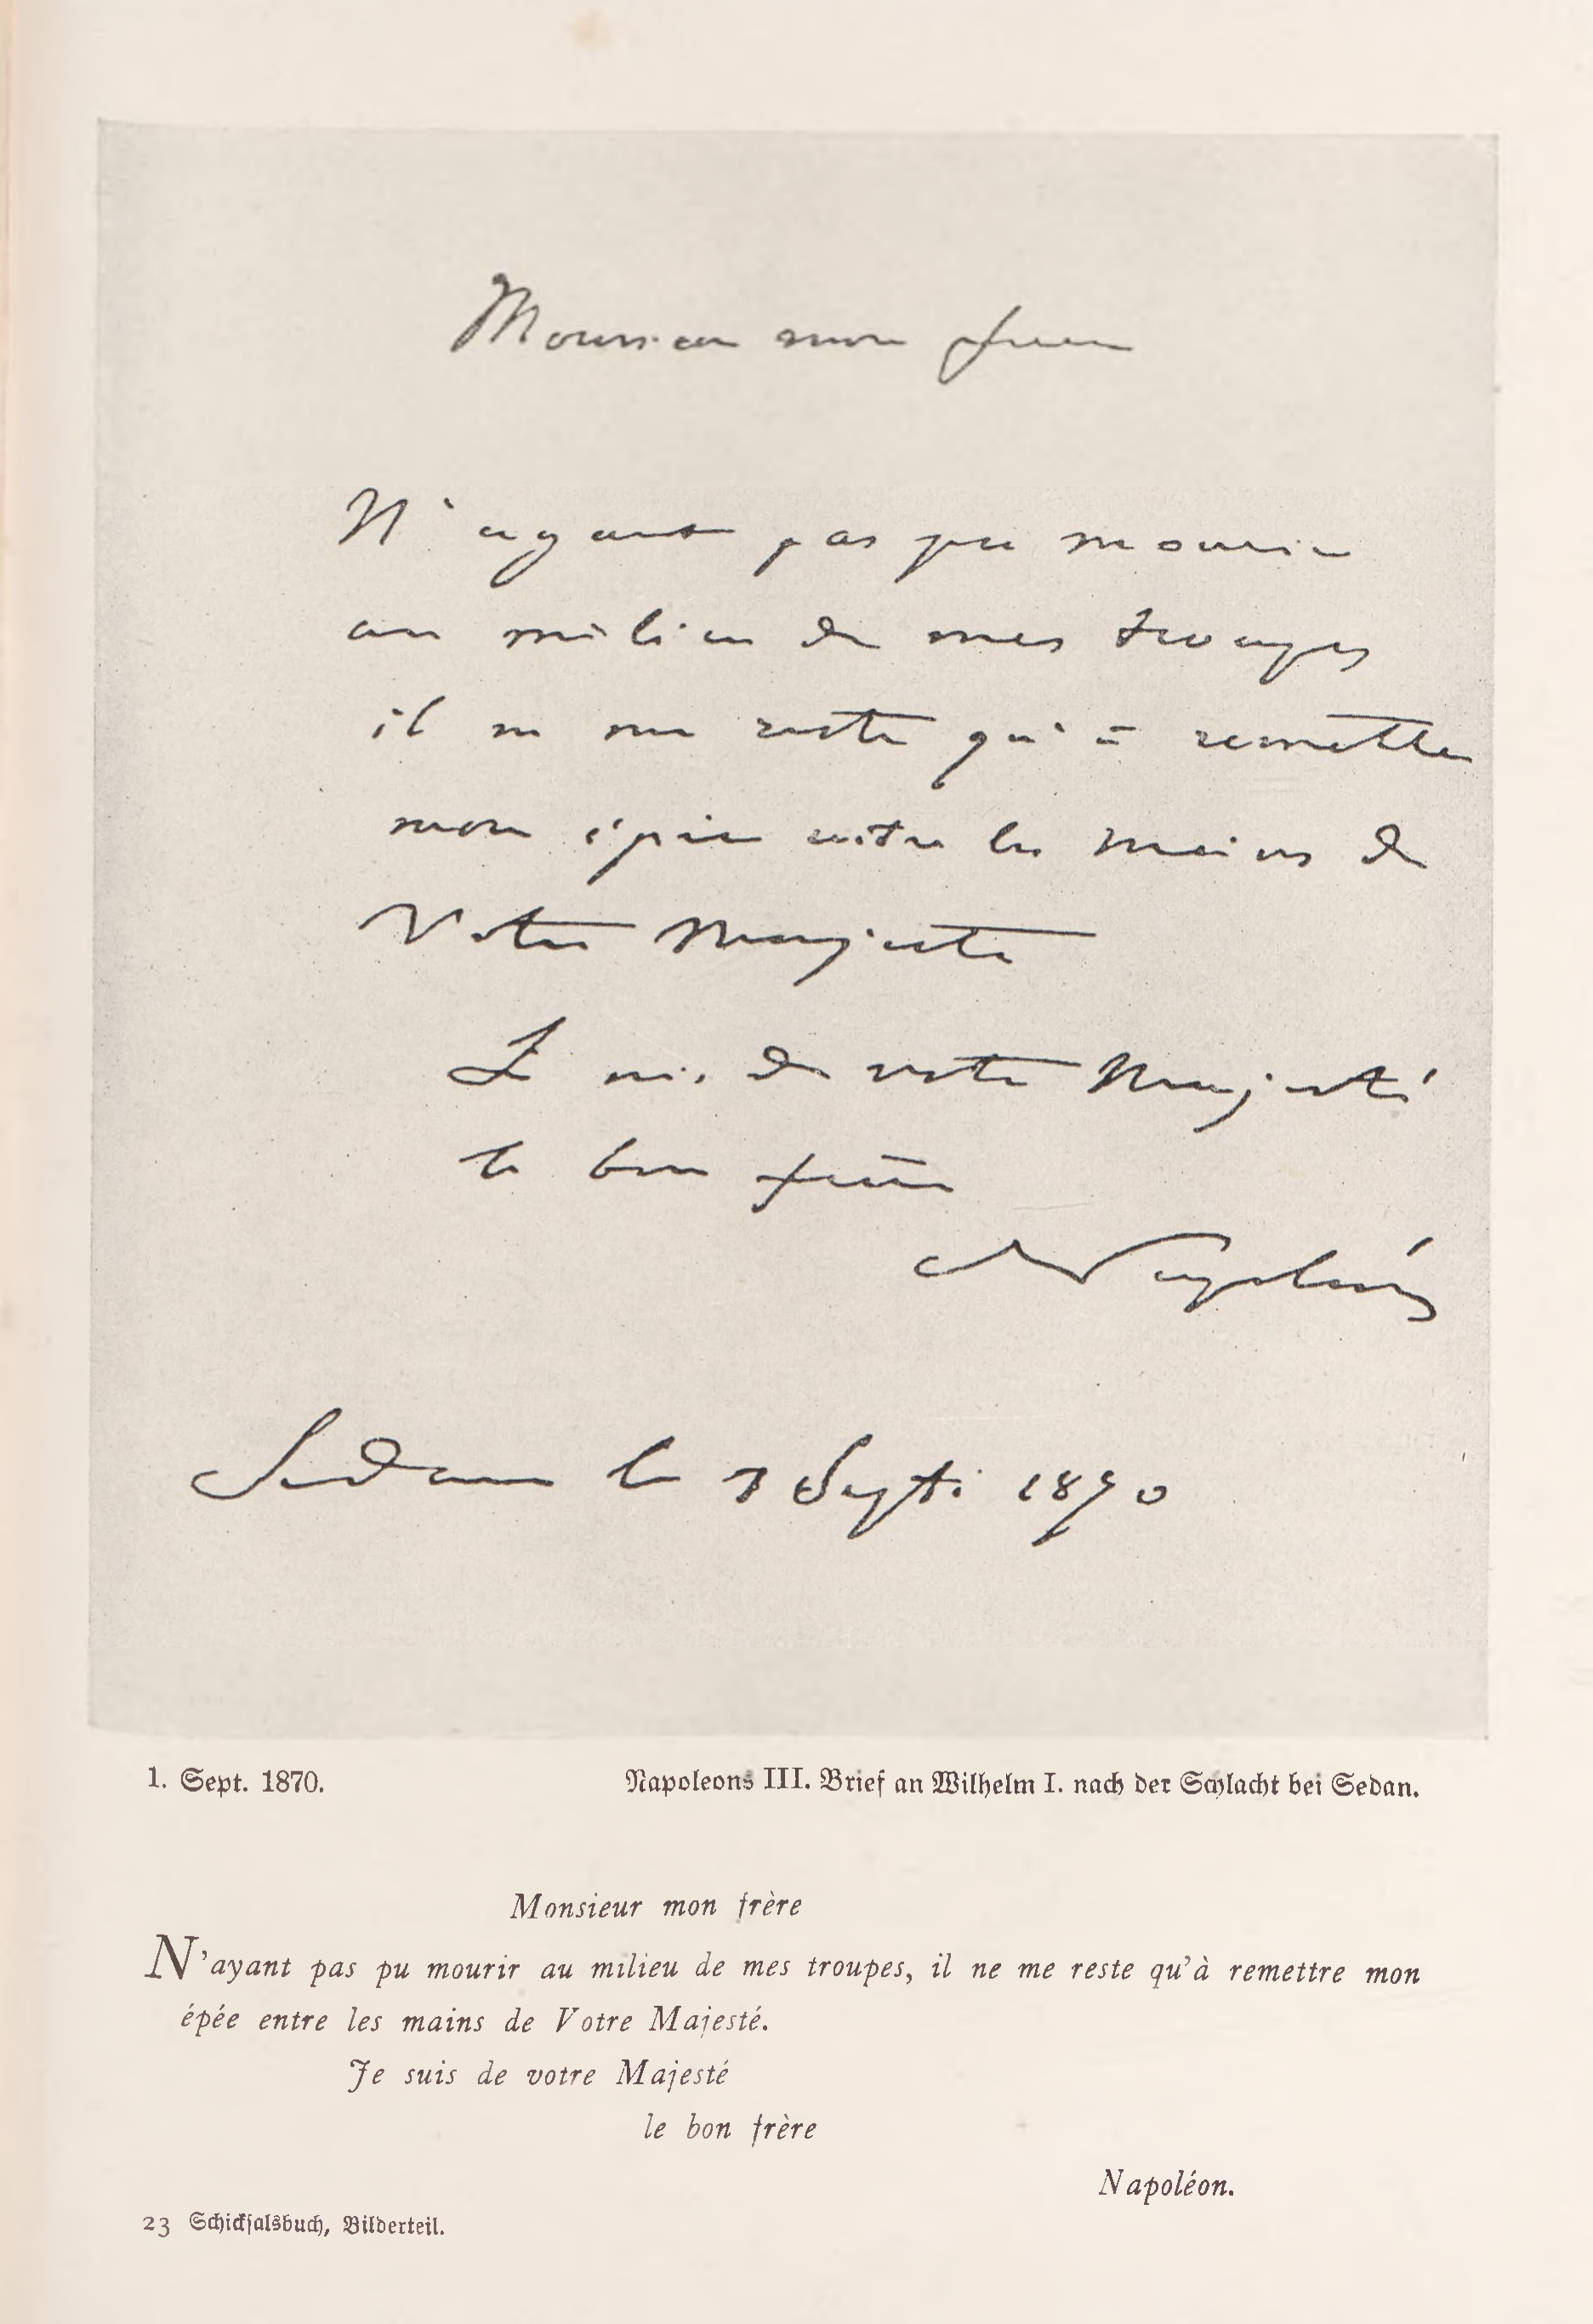 Monsieur mon frère
N'ayant pas pu mourir
au milieu de mes troupes
il ne me reste qu'à remettre
mon épée entre les mains de
Votre Majesté
Je suis de votre Majesté
le bon frère
Napoléon
Sedan le 1 Septe 1870
1. Sept. 1870. Napoleons III. Brief an Wilhelm I. nach der Schlacht bei Sedan.
Monsieur mon frère
N'ayant pas pu mourir au milieu de mes troupes, il ne me reste qu'à remettre mon
épée entre les mains de Votre Majesté.
Je suis de votre Majesté
le bon frère
Napoléon.
23 Schicksalsbuch, Bilderteil.